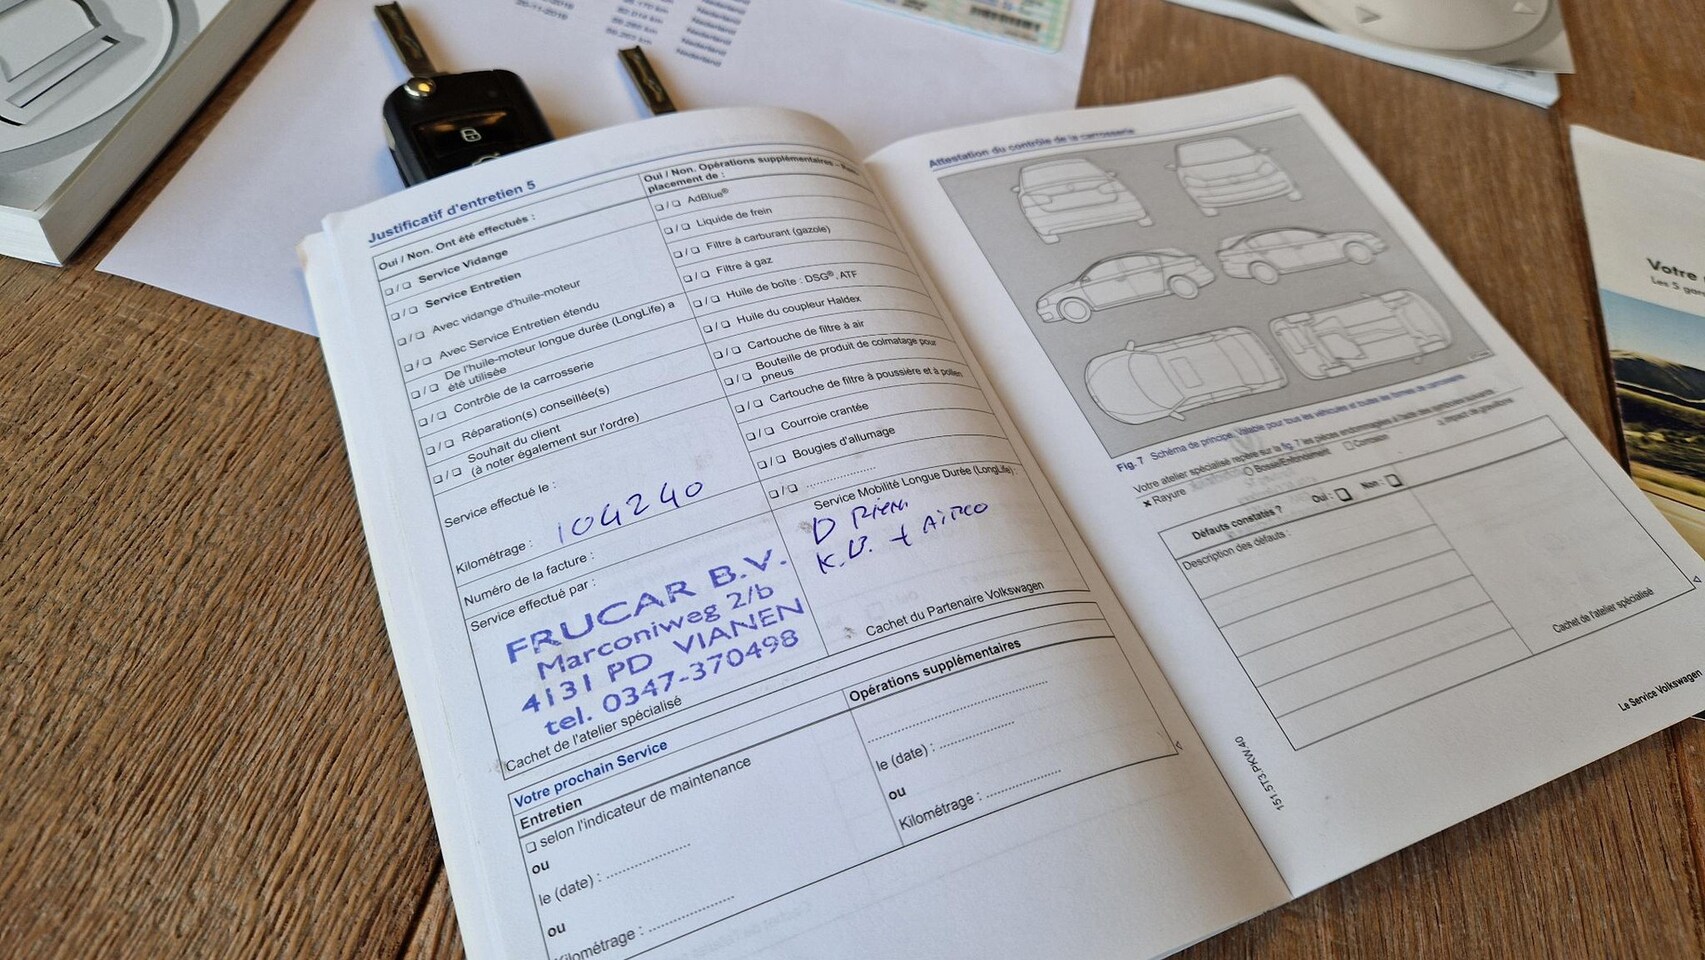 Nederland
Nederland
Nederland
Nederland
Justificatif d'entretien 5
Oui / Non. Ont été effectués :
❑ / ❑ Service Vidange
❑ / ❑ Service Entretien
❑ / ❑ Avec vidange d'huile-moteur
❑ / ❑ Avec Service Entretien étendu
❑ / ❑ De l'huile-moteur longue durée (LongLife) a
été utilisée
❑ / ❑ Contrôle de la carrosserie
❑ / ❑ Réparation(s) conseillée(s)
❑ / ❑ Souhait du client
(à noter également sur l'ordre)
Oui / Non. Opérations supplémentaires -
placement de :
❑ / ❑ AdBlue®
❑ / ❑ Liquide de frein
❑ / ❑ Filtre à carburant (gazole)
❑ / ❑ Filtre à gaz
❑ / ❑ Huile de boîte : DSG®, ATF
❑ / ❑ Huile du coupleur Haldex
❑ / ❑ Cartouche de filtre à air
❑ / ❑ Bouteille de produit de colmatage pour
pneus
❑ / ❑ Cartouche de filtre à poussière et à pollen
❑ / ❑ Courroie crantée
❑ / ❑ Bougies d'allumage
❑ / ❑ ....................
Service effectué le :
Kilométrage : 104240
Numéro de la facture :
Service effectué par :
FRUCAR B.V.
Marconiweg 2/b
4131 PD VIANEN
tel. 0347-370498
Cachet de l'atelier spécialisé
Service Mobilité Longue Durée (LongLife) :
K.B. + AIRCO
Cachet du Partenaire Volkswagen
Votre prochain Service
Entretien
❑ selon l'indicateur de maintenance
ou
le (date) : ....................
ou
Kilométrage : ....................
Opérations supplémentaires
........................................
le (date) : ....................
ou
Kilométrage : ....................
Attestation du contrôle de la carrosserie
Fig. 7 Schéma de principe. Valable pour tous les véhicules et toutes les formes de carrosserie.
Votre atelier spécialisé repère sur la fig. 7 les pièces endommagées à l'aide des symboles suivants :
× Rayure ○ Bosse/Enfoncement □ Corrosion △ Impact de gravillons
Défauts constatés ? Oui : ❑ Non : ❑
Description des défauts :
Cachet de l'atelier spécialisé
Le Service Volkswagen
151.5T3.PKW.40
Votre